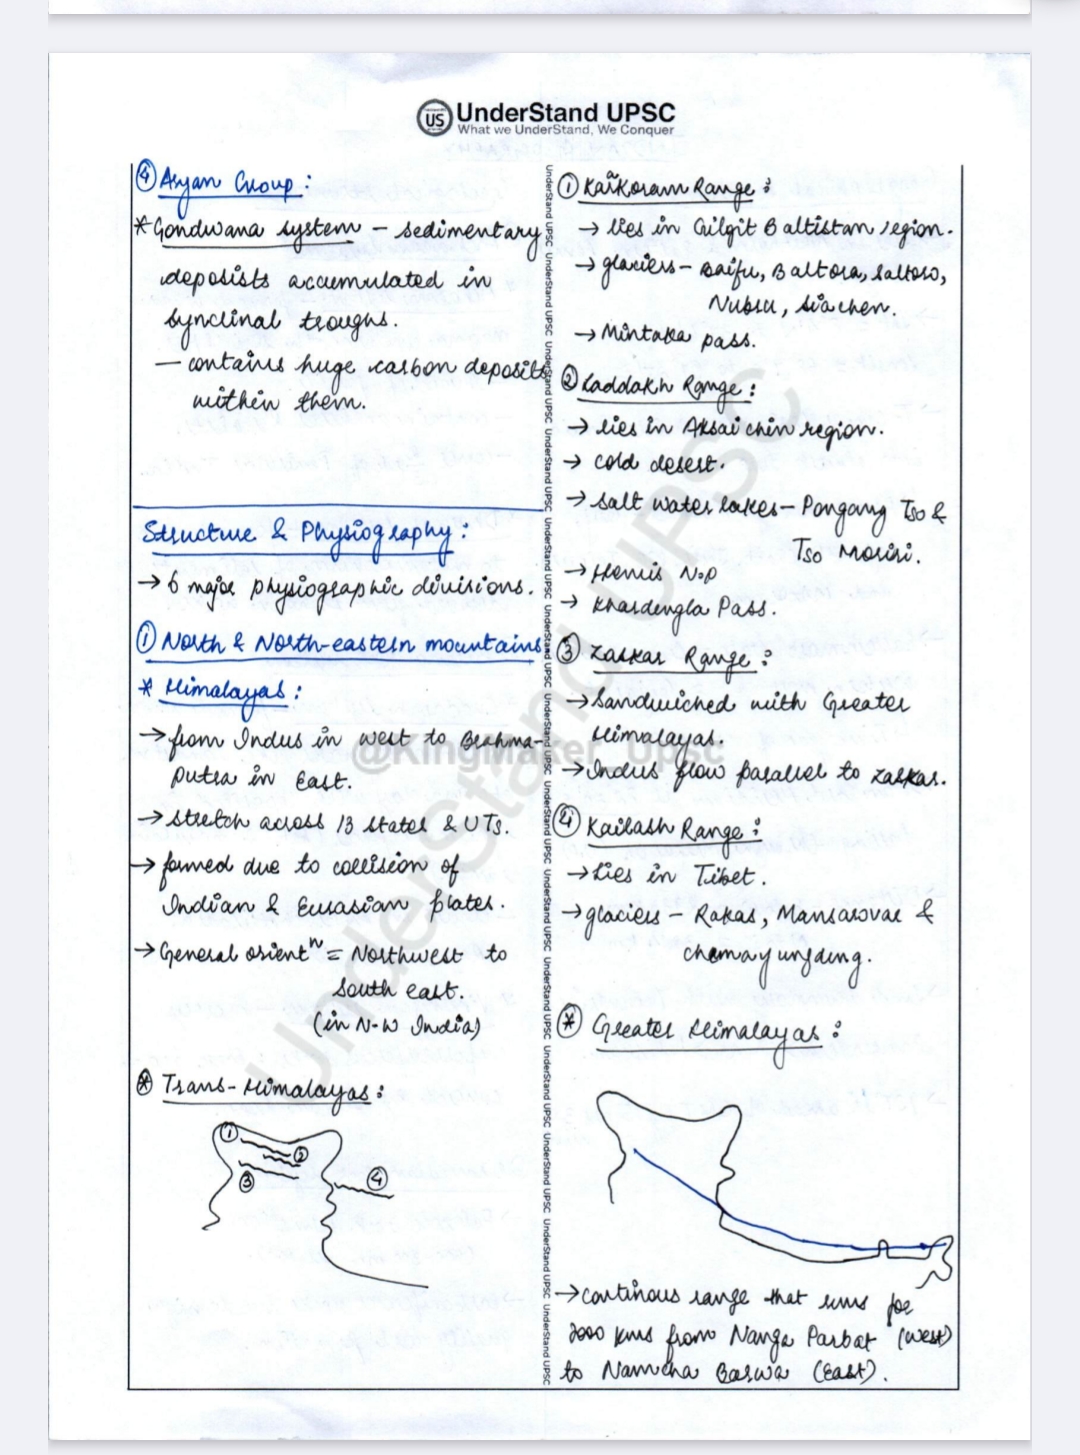 US
UnderStand UPSC
What we UnderStand, We Conquer
④ Aryan Group :
* Gondwana system – sedimentary
deposists accumulated in
synclinal troughs.
– contains huge carbon deposits
within them.
Structure & Physiography :
→ 6 major physiographic divisions.
① North & North-eastern mountains
* Himalayas :
→ from Indus in west to Brahma-
putra in East.
→ stretch across 13 states & UTs.
→ formed due to collision of
Indian & Eurasian plates.
→ General orientⁿ = Northwest to
South east.
(in N-W India)
⊛ Trans-Himalayas :
①
②
③
④
UnderStand UPSC UnderStand UPSC UnderStand UPSC UnderStand UPSC
① Karkoram Range :
→ lies in Gilgit Baltistan region.
→ glaciers – Baifu, Baltora, Saltoro,
Nubra, Siachen.
→ Mintaka pass.
② Laddakh Range :
→ lies in Aksai chin region.
→ cold desert.
→ salt water lakes – Pongang Tso &
Tso Moriri.
→ Hemis N.P
→ Khardengla Pass.
③ Zaskar Range :
→ Sandwiched with Greater
Himalayas.
→ Indus flow parallel to Zaskar.
④ Kailash Range :
→ Lies in Tibet.
→ glaciers – Rakas, Mansarovar &
chemayungdung.
⊛ Greater Himalayas :
→ continous range that runs for
2000 kms from Nanga Parbat (west)
to Namcha Barwa (East).
UnderStand UPSC
@KingMaker_Upsc